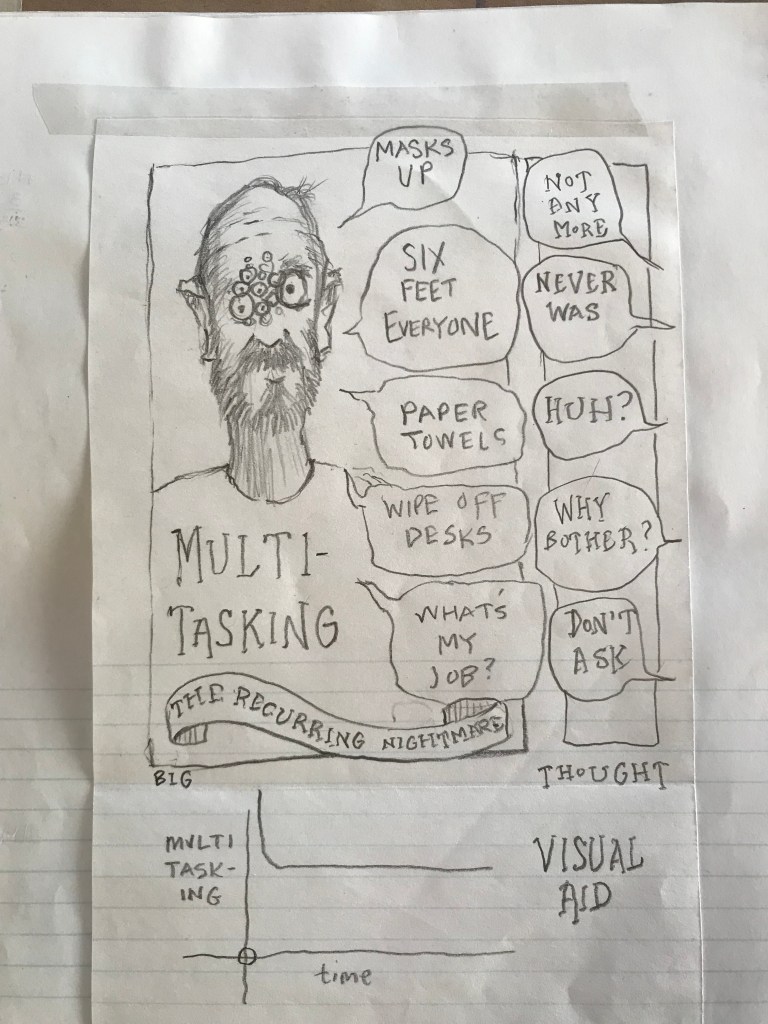 MASKS
UP
NOT
ANY
MORE
SIX
FEET
EVERYONE
NEVER
WAS
PAPER
TOWELS
HUH?
WIPE OFF
DESKS
WHY
BOTHER?
WHAT'S
MY
JOB?
DON'T
ASK
MULTI-
TASKING
THE RECURRING NIGHTMARE
BIG
THOUGHT
MULTI
TASK-
ING
VISUAL
AID
time